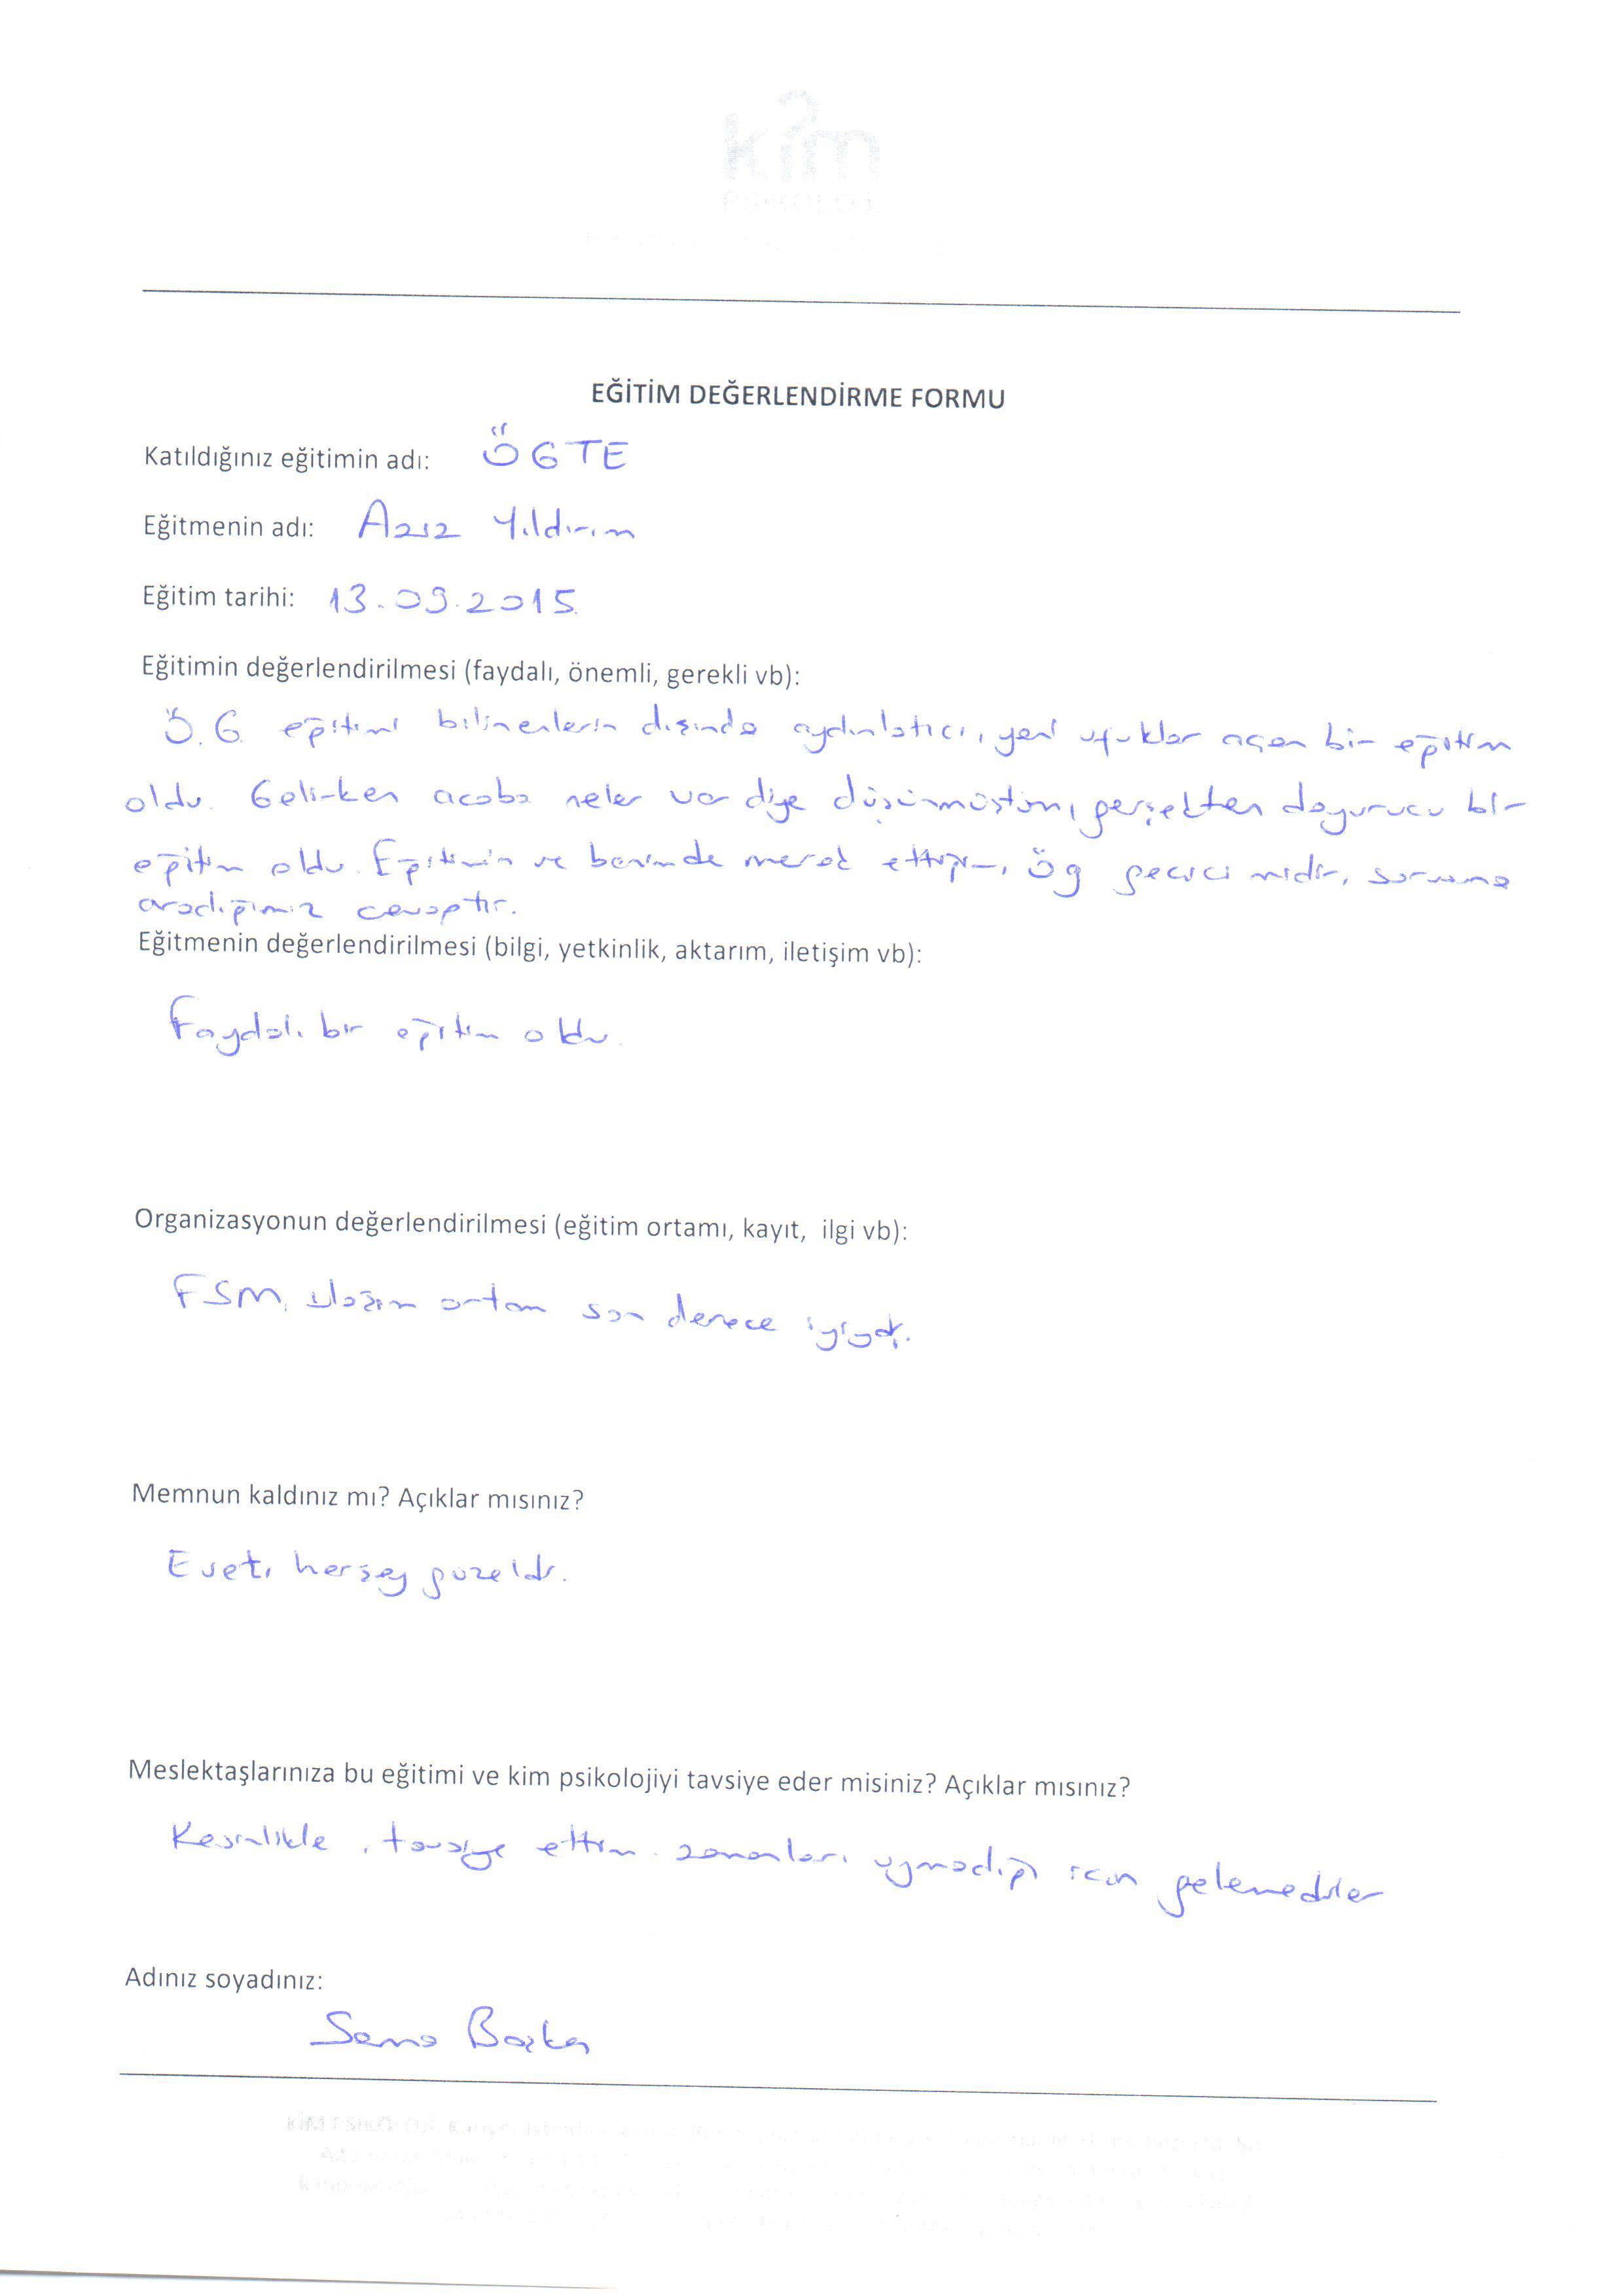 kim
EĞİTİM DEĞERLENDİRME FORMU
Katıldığınız eğitimin adı: ÖGTE
Eğitmenin adı: Aziz Yıldırım
Eğitim tarihi: 13.09.2015
Eğitimin değerlendirilmesi (faydalı, önemli, gerekli vb):
Ö.G. eğitimi bilinenlerin dışında aydınlatıcı, yeni ufuklar açan bir eğitim
oldu. Gelirken acaba neler var diye düşünmüştüm, gerçekten doyurucu bir
eğitim oldu. Eğitimin ve benimde merak ettiğim, ög geçici midir, soruna
aradığımız cevaptır.
Eğitmenin değerlendirilmesi (bilgi, yetkinlik, aktarım, iletişim vb):
Faydalı bir eğitim oldu.
Organizasyonun değerlendirilmesi (eğitim ortamı, kayıt, ilgi vb):
FSM, ulaşım ortam son derece iyiydi.
Memnun kaldınız mı? Açıklar mısınız?
Evet, herşey güzeldi.
Meslektaşlarınıza bu eğitimi ve kim psikolojiyi tavsiye eder misiniz? Açıklar mısınız?
Kesinlikle, tavsiye ettim. zamanları uymadığı icin gelemediler
Adınız soyadınız:
Sema